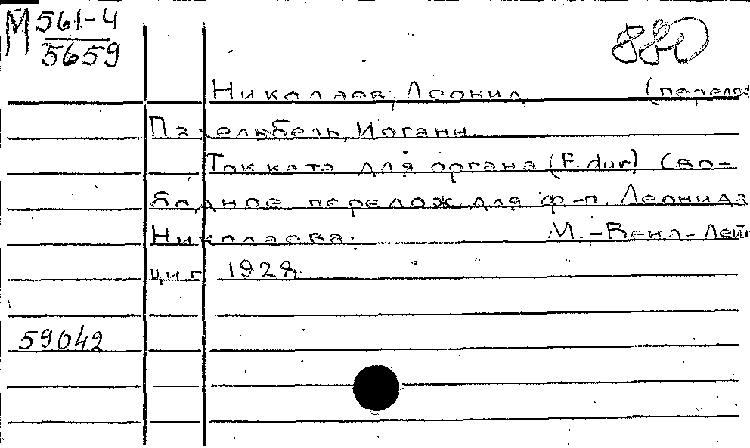 М 561-4
5659
880
Николаев, Леонид (перелож
Пахельбель, Иоганн.
Токката для органа (F. dur) Сво-
бодное перелож. для ф-п. Леонида
Николаева. М. - Вена - Лейп
циг 1929.
59042